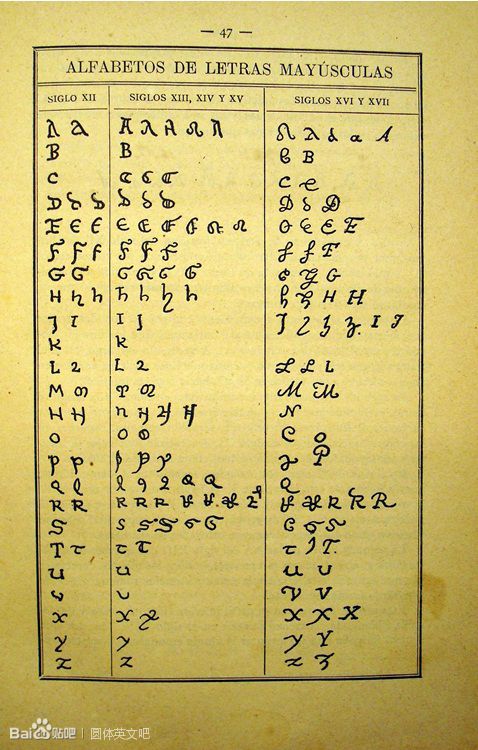 — 47 —
ALFABETOS DE LETRAS MAYÚSCULAS
SIGLO XII SIGLOS XIII, XIV Y XV SIGLOS XVI Y XVII
A a A A A A A A A a a A
B B B B
C C C C C e
D D D D D D D D D
E E E E E E E E E E E E E
F F F F F F F F F
G G G G G G G G G
H h h h h h h h h H H
J I I J J I J J I J
K K
L L L L L L L
M M M M M M
H H n H H H N
O O O C O
P P P P P P P
Q Q Q Q Q Q Q Q
R R R R R R R R R R R R R R
S S S S S S S S S
T T T T T T T
U U U U
V V V V
X X X X X X
Y Y Y Y
Z Z Z Z
Bai 贴吧 | 圆体英文吧